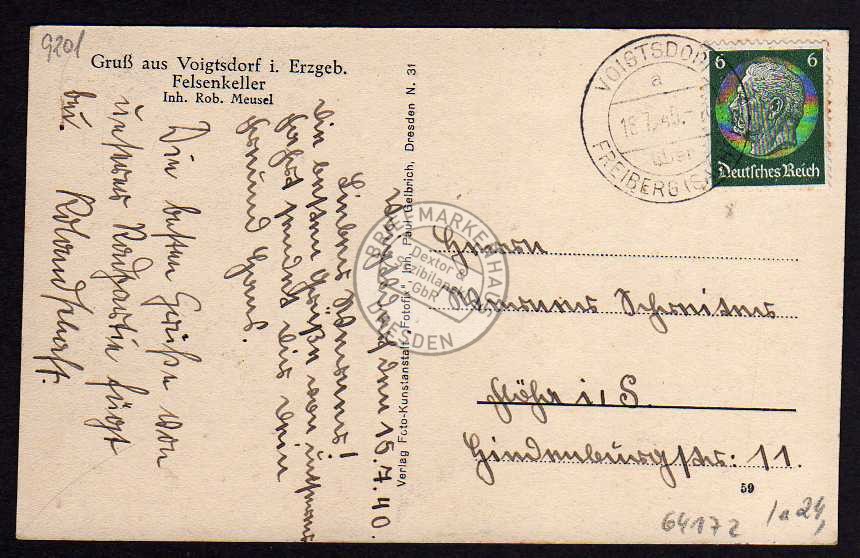 9201
Gruß aus Voigtsdorf i. Erzgeb.
Felsenkeller
Inh. Rob. Meusel
Voigtsdorf, den 15.7.40.
Lieber Werner!
Die besten Grüße von unserer
Fahrt sendet dir dein
Freund Hans.
Die besten Grüße von
unserer Radpartie fügt
bei.
Verlag Foto-Kunstanstalt „Fotofix“ Inh. Paul Gelbrich, Dresden N. 31
VOIGTSDORF
a
über
FREIBERG (SA
6 6
Deutsches Reich
BRIEFMARKENHAUS
Dextor &
Szibilanski
GbR
DRESDEN
Herrn
Werner Schreiter
Flöha i/S.
Hindenburgstr: 11.
59
64172
1a 24,